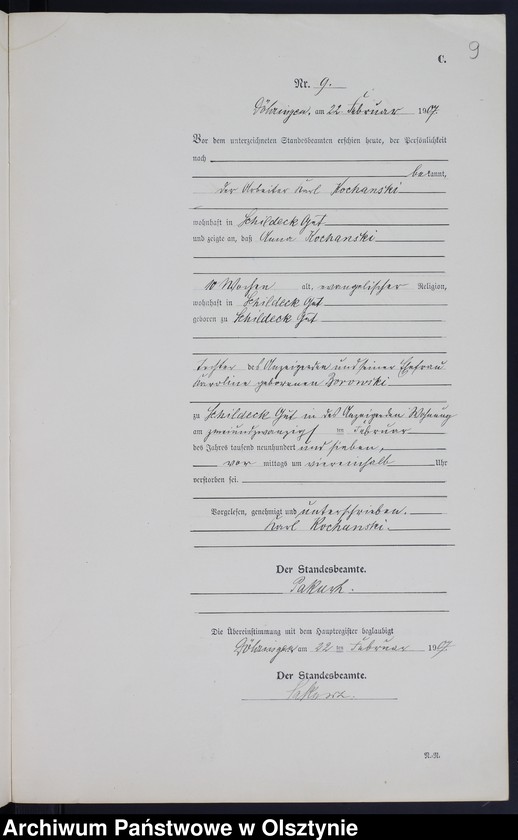 9
C.
Nr. 9.
Döhringen, am 22 Februar 1907.
Vor dem unterzeichneten Standesbeamten erschien heute, der Persönlichkeit
nach
bekannt,
der Arbeiter Karl Kochanski
wohnhaft in Schildeck Gut
und zeigte an, daß Anna Kochanski
10 Wochen alt, evangelischer Religion,
wohnhaft in Schildeck Gut
geboren zu Schildeck Gut
Tochter des Anzeigenden und seiner Ehefrau
Karoline geborenen Borowski
zu Schildeck Gut in des Anzeigenden Wohnung
am zweiundzwanzigst Februar
des Jahres tausend neunhundert und sieben,
vor mittags um viereinhalb Uhr
verstorben sei.
Vorgelesen, genehmigt und unterschrieben.
Karl Kochanski.
Der Standesbeamte.
Die Übereinstimmung mit dem Hauptregister beglaubigt
Döhringen am 22 Februar 1907.
Der Standesbeamte.
N.-N.
Archiwum Państwowe w Olsztynie